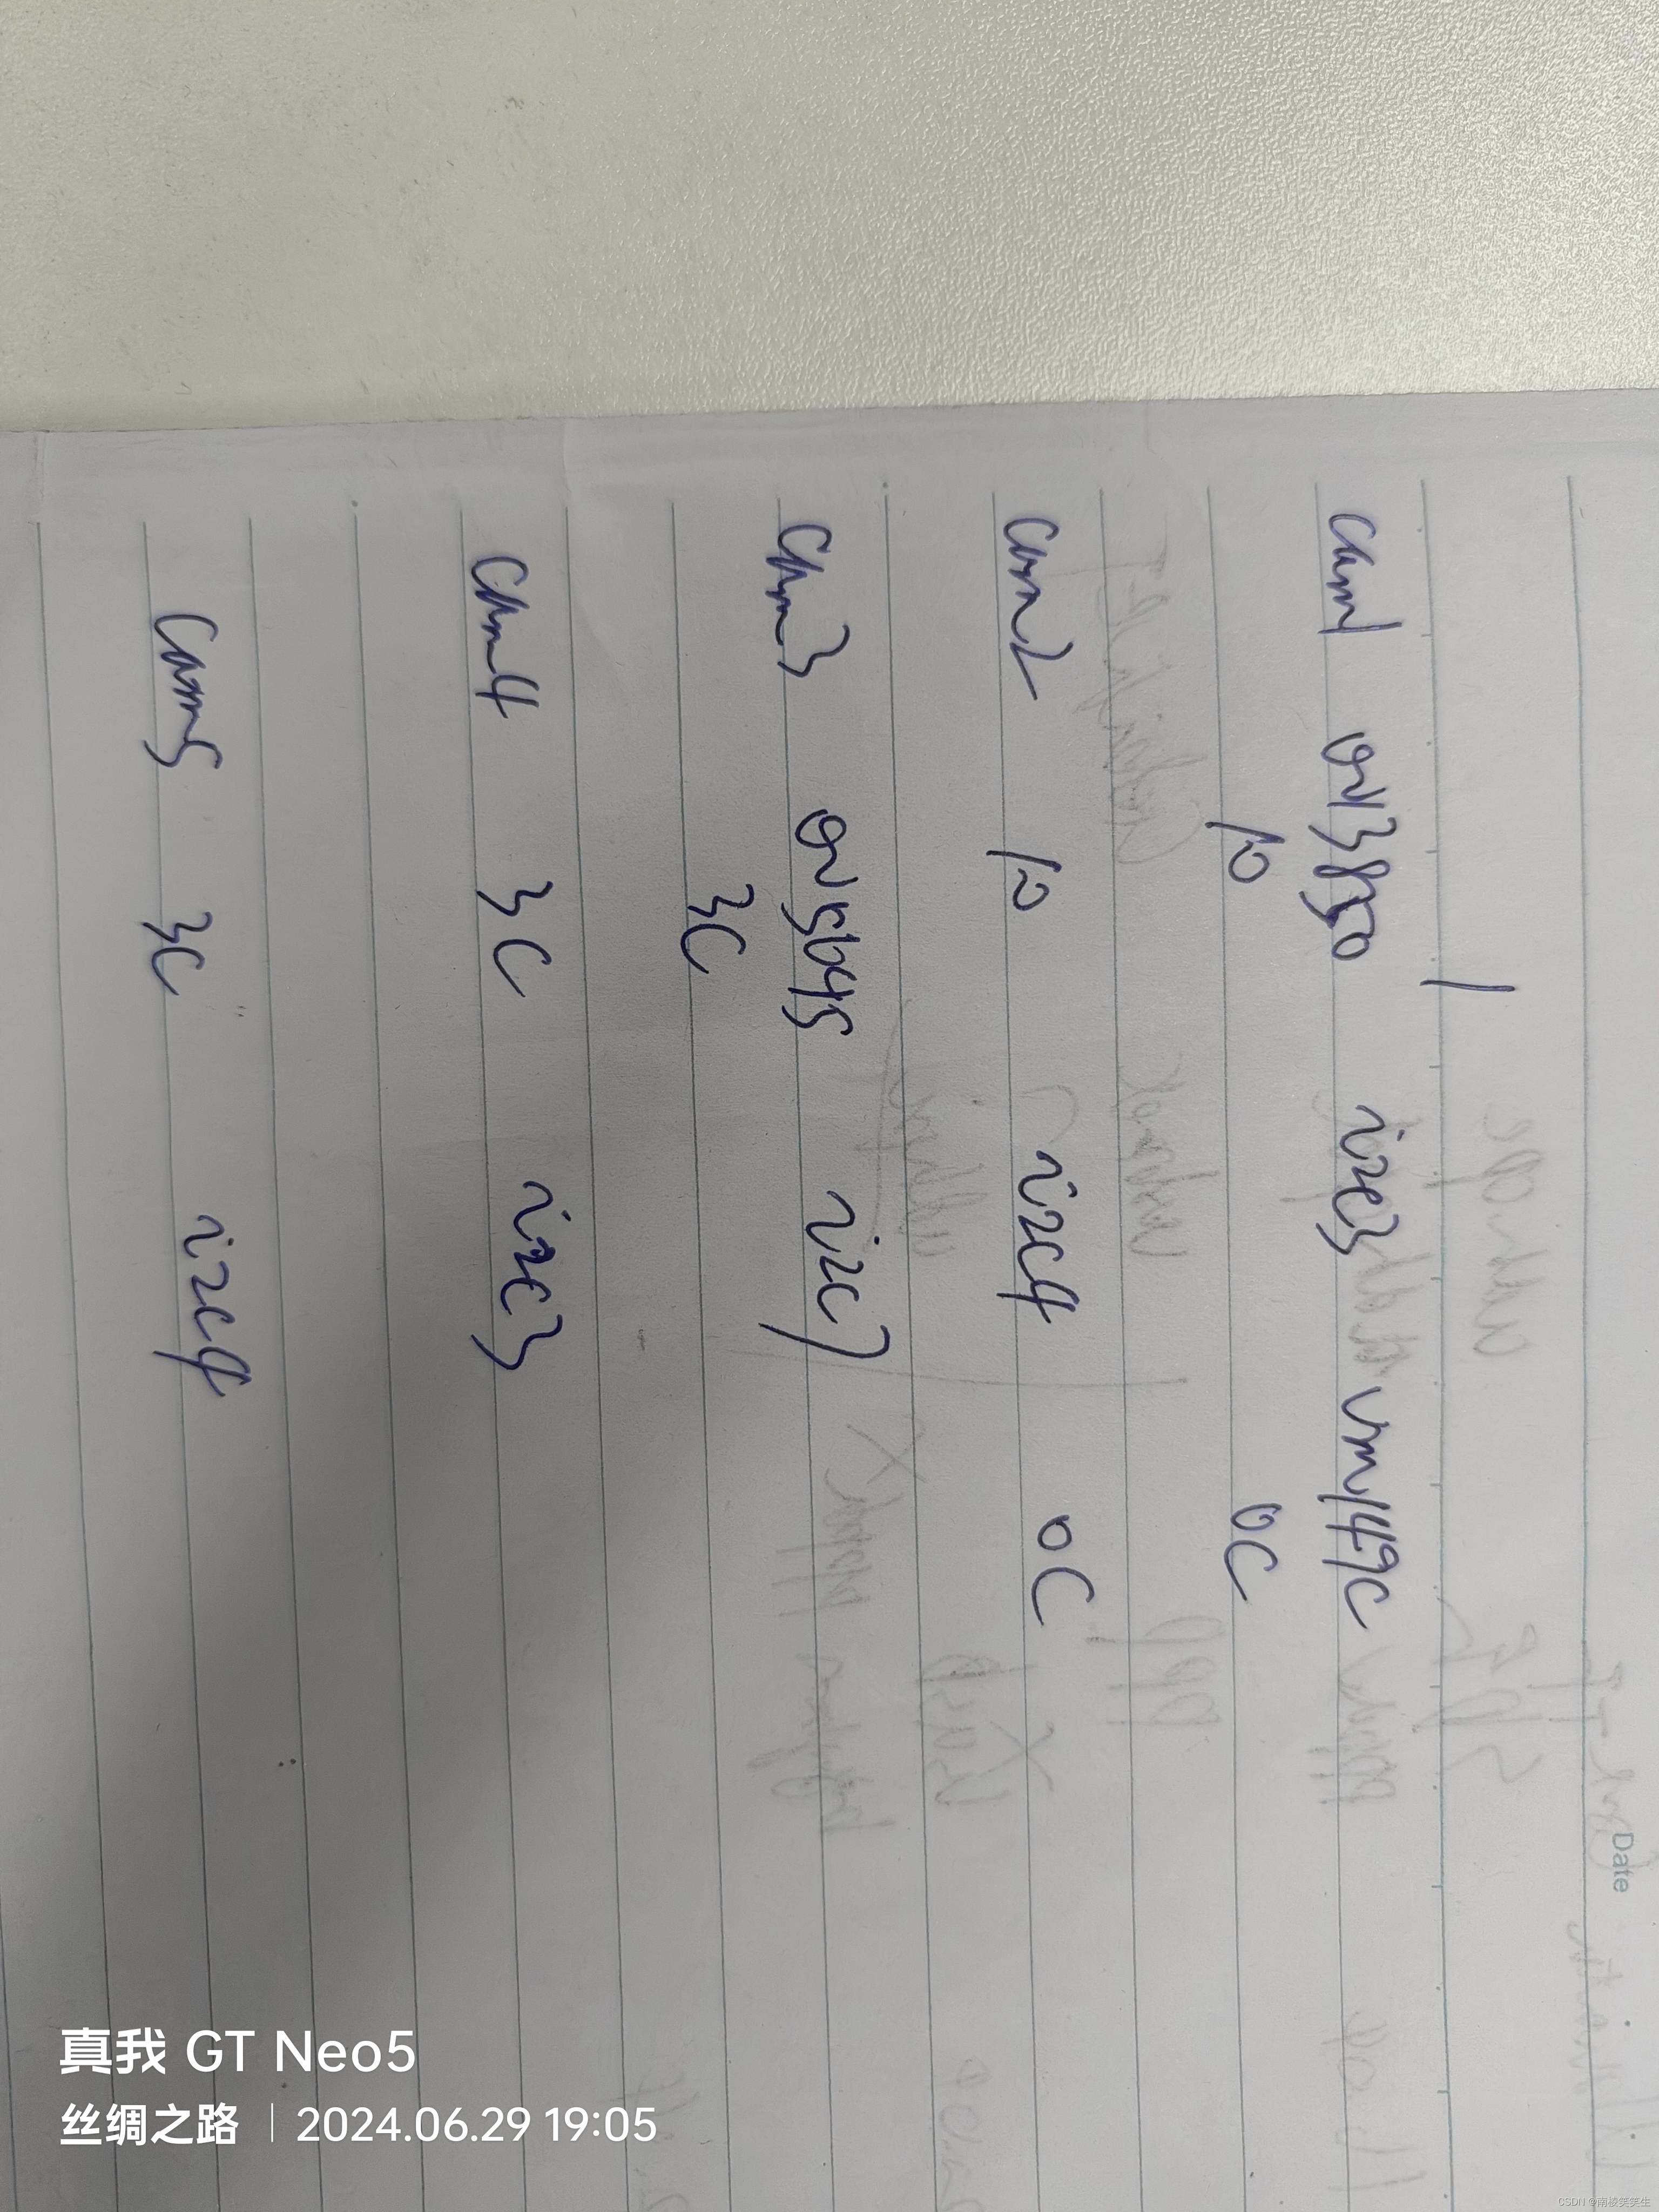 cam1 ov13850 i2c3 vm149C
10 0C
cam2 10 i2c4 0C
cam3 ov5645 i2c7
3C
cam4 3C i2c3
cam5 3C i2c4
Date
真我 GT Neo5
丝绸之路 | 2024.06.29 19:05
CSDN @南棱笑笑生